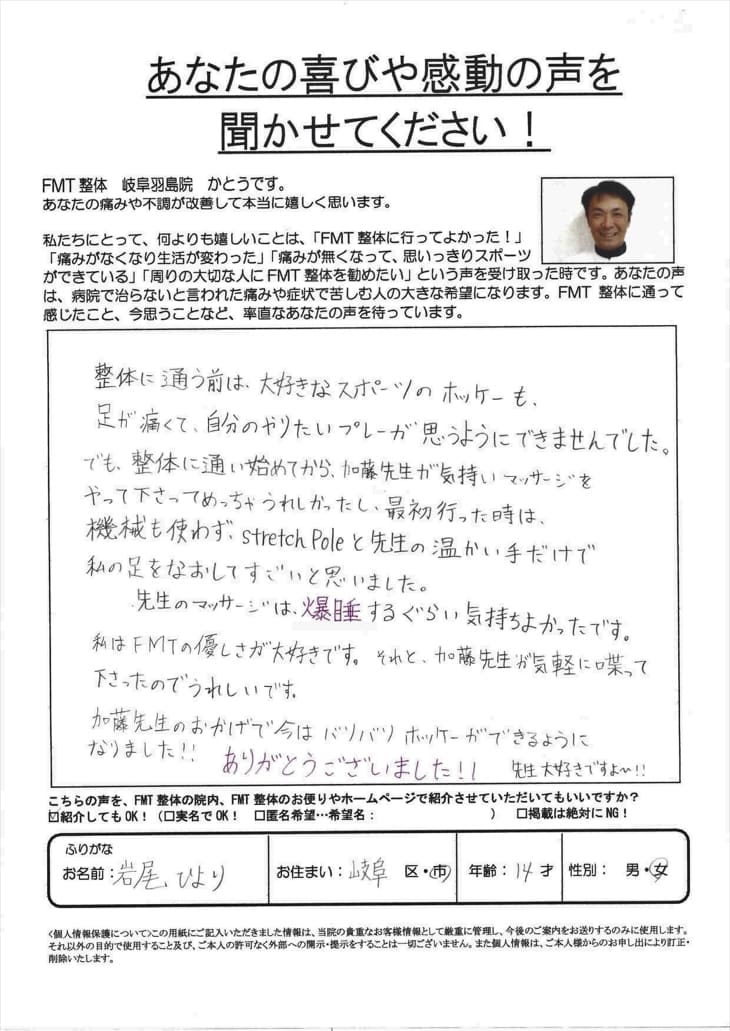 あなたの喜びや感動の声を
聞かせてください！
FMT整体　岐阜羽島院　かとうです。
あなたの痛みや不調が改善して本当に嬉しく思います。
私たちにとって、何よりも嬉しいことは、「FMT整体に行ってよかった！」
「痛みがなくなり生活が変わった」「痛みが無くなって、思いっきりスポーツ
ができている」「周りの大切な人にFMT整体を勧めたい」という声を受け取った時です。あなたの声
は、病院で治らないと言われた痛みや症状で苦しむ人の大きな希望になります。FMT整体に通って
感じたこと、今思うことなど、率直なあなたの声を待っています。
整体に通う前は、大好きなスポーツのホッケーも、
足が痛くて、自分のやりたいプレーが思うようにできませんでした。
でも、整体に通い始めてから、加藤先生が気持いマッサージを
やって下さってめっちゃうれしかったし、最初行った時は、
機械も使わず、stretch Poleと先生の温かい手だけで
私の足をなおしてすごいと思いました。
先生のマッサージは、爆睡するぐらい気持ちよかったです。
私はFMTの優しさが大好きです。それと、加藤先生が気軽に喋って
下さったのでうれしいです。
加藤先生のおかげで今はバリバリホッケーができるように
なりました!! ありがとうございました!! 先生大好きですよ〜!!
こちらの声を、FMT整体の院内、FMT整体のお便りやホームページで紹介させていただいてもいいですか？
☑紹介してもOK！（□実名でOK！　□匿名希望…希望名：　　　　　　　）　□掲載は絶対にNG！
ふりがな
お名前：岩尾 ひより　お住まい：岐阜 区・市　年齢：14才　性別：　男・女
<個人情報保護について>この用紙にご記入いただきました情報は、当院の貴重なお客様情報として厳重に管理し、今後のご案内をお送りするのみに使用します。
それ以外の目的で使用すること及び、ご本人の許可なく外部への開示・提示をすることは一切ございません。また個人情報は、ご本人様からのお申し出により訂正・
削除いたします。